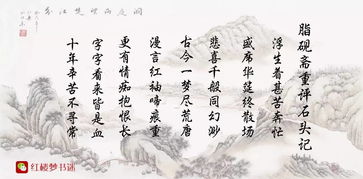 脂砚斋重评石头记
浮生着甚苦奔忙
盛席华筵终散场
悲喜千般同幻渺
古今一梦尽荒唐
漫言红袖啼痕重
更有情痴抱恨长
字字看来皆是血
十年辛苦不寻常
红楼梦书迷